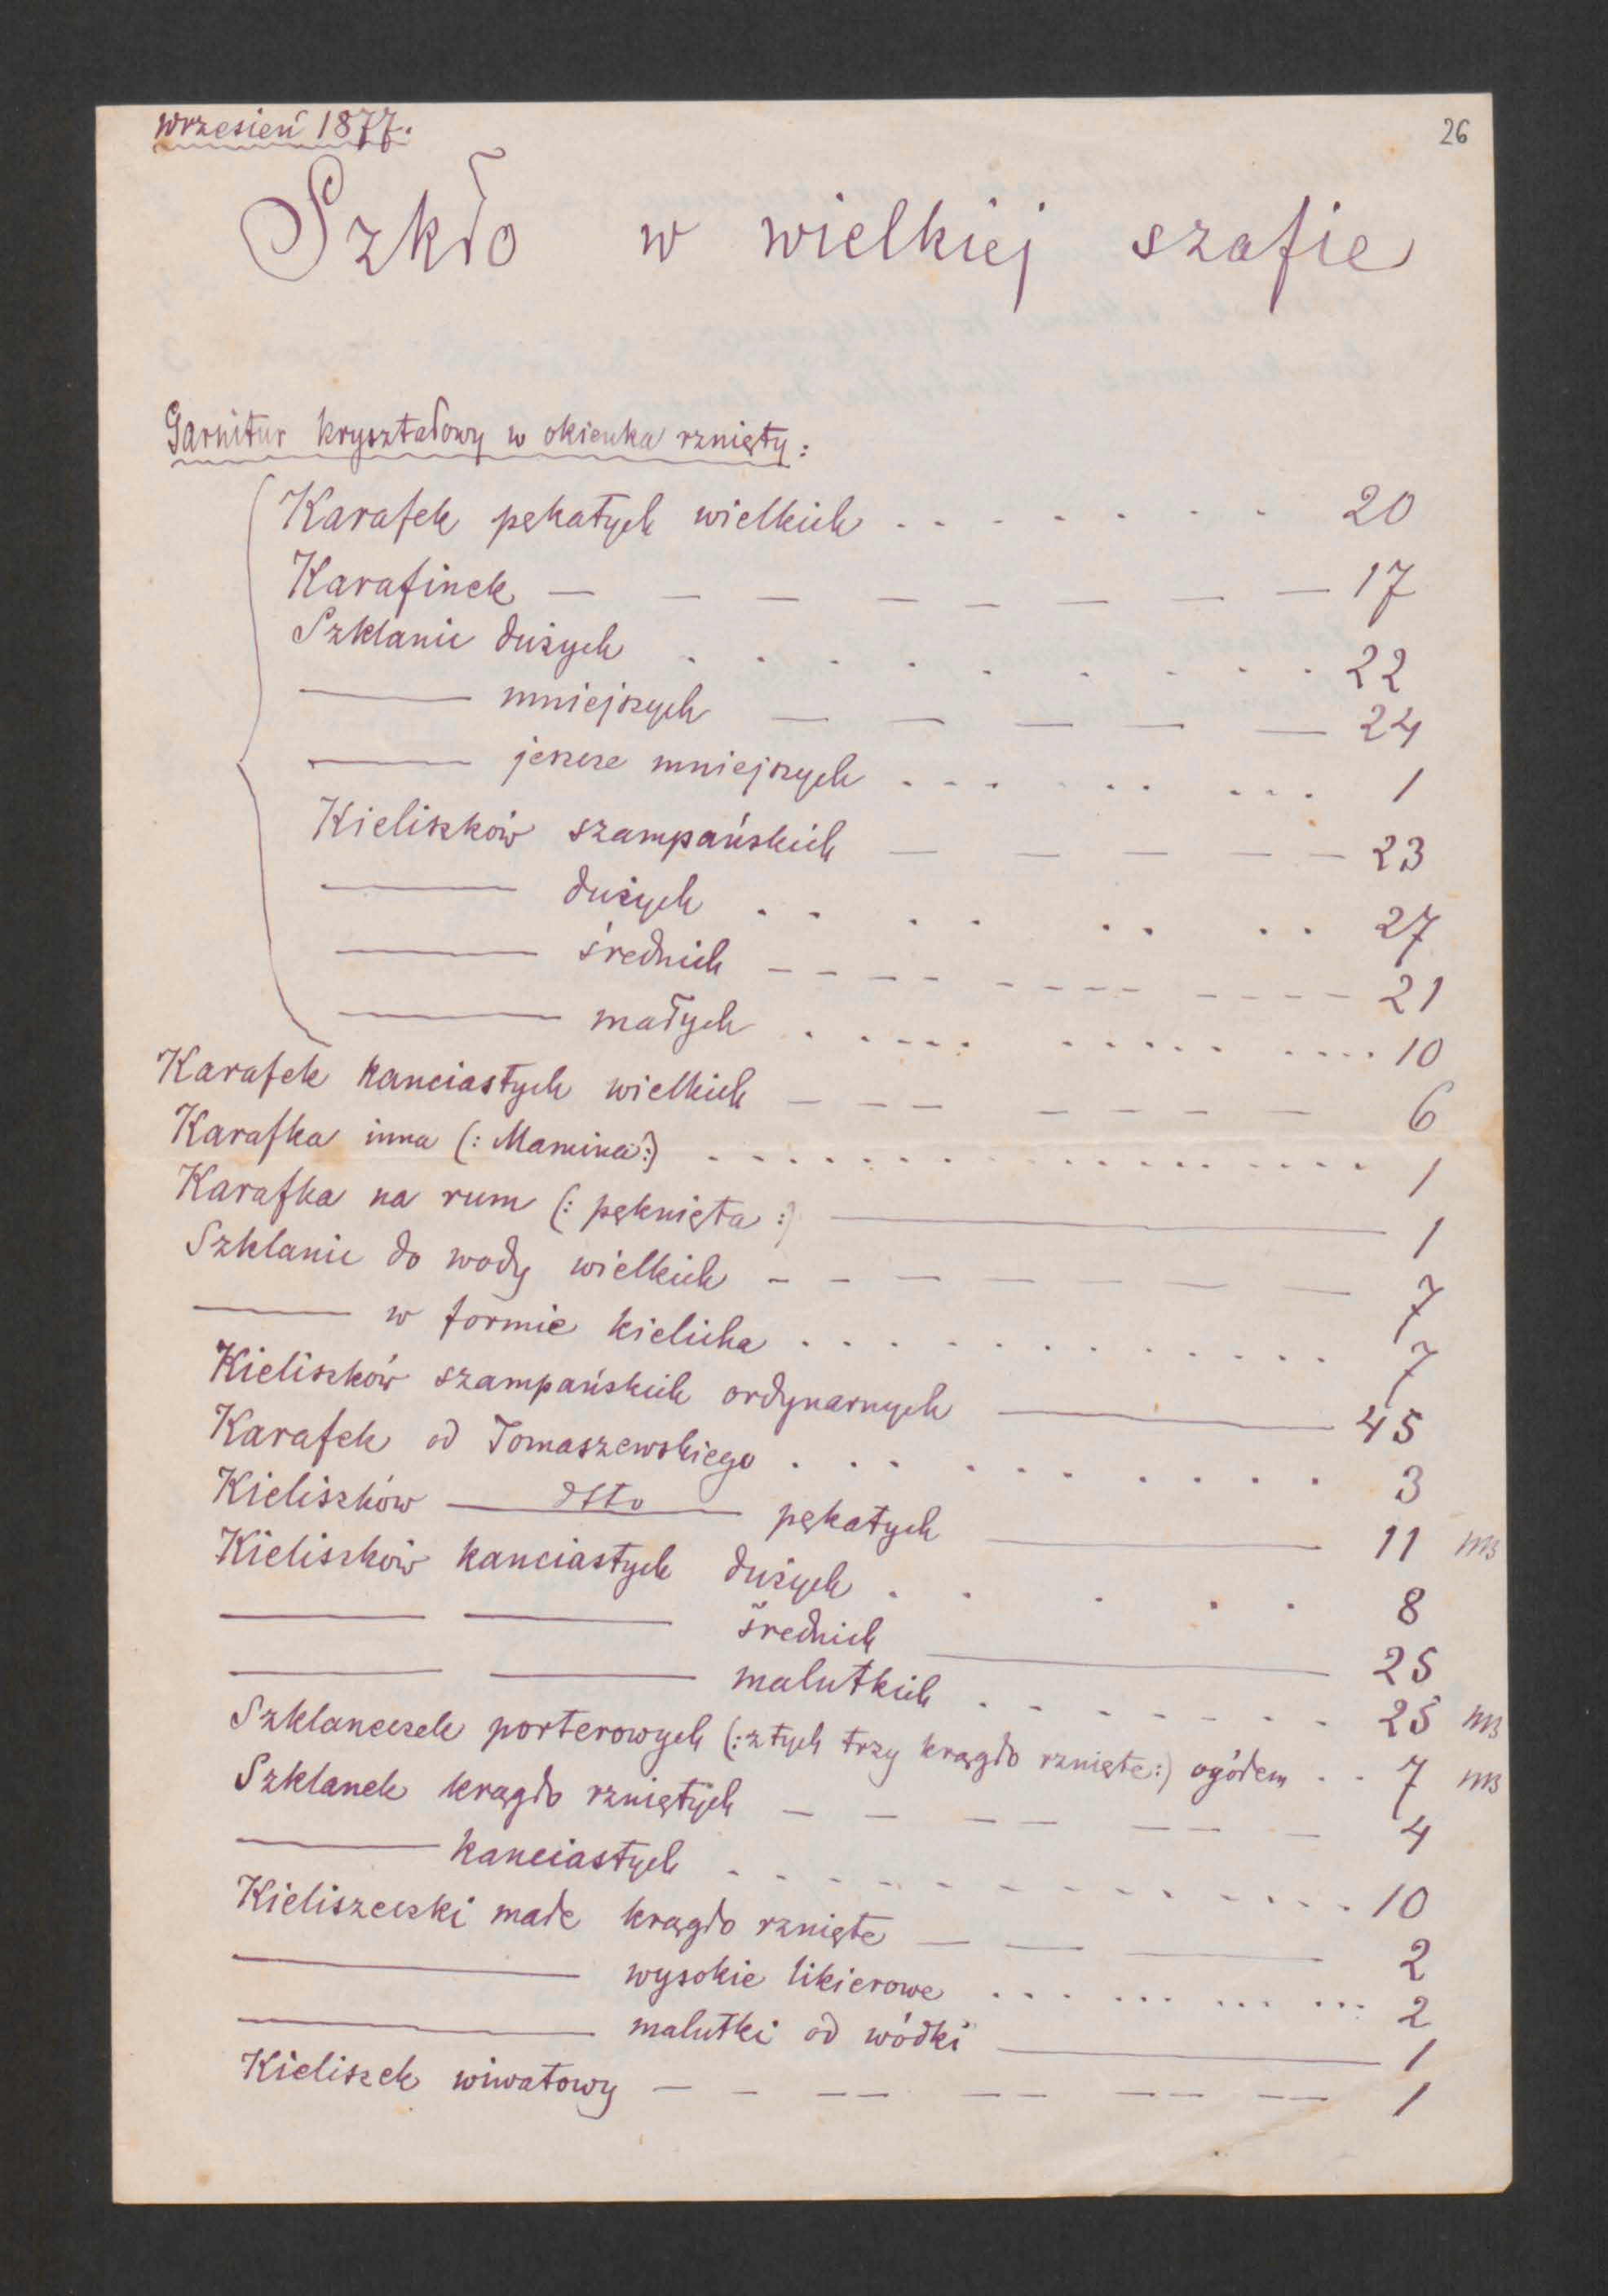 wrzesień 1877.
26
Szkło w wielkiej szafie
Garnitur kryształowy w okienka rznięty:
Karafek pękatych wielkich . . . . . . . 20
Karafinek — — — — — — — — 17
Szklanic dużych . . . . . . . . 22
—— mniejszych — — — — — 24
—— jeszcze mniejszych . . . . . . . . . 1
Kieliszków szampańskich — — — — — 23
—— dużych . . . . . . . . 27
—— średnich - - - - - - - - - - - - 21
—— małych . . . . . . . . . . . . . . 10
Karafek kanciastych wielkich — — — — — — — 6
Karafka inna (: Mamina :) . . . . . . . . . . . . . . . . . 1
Karafka na rum (: pęknięta :) —— 1
Szklanic do wody wielkich — — — — — — — 7
—— w formie kielicha . . . . . . . . . . . . 7
Kieliszków szampańskich ordynarnych —— 45
Karafek od Tomaszewskiego . . . . . . . . . . 3
Kieliszków — dtto — pękatych —— 11
Kieliszków kanciastych dużych . . . . . 8
—— —— średnich —— 25
—— —— malutkich . . . . . . . . 25
Szklaneczek porterowych (: z tych trzy krągło rznięte :) ogółem . . 7
Szklanek krągło rzniętych — — — — — — — 4
—— kanciastych . . . . . . . . . . . . . . 10
Kieliszeczki małe krągło rznięte — — — 2
—— wysokie likierowe . . . . . . . . . . . . 2
—— malutki od wódki —— 1
Kieliszek wiwatowy — — — — — — — — — — 1